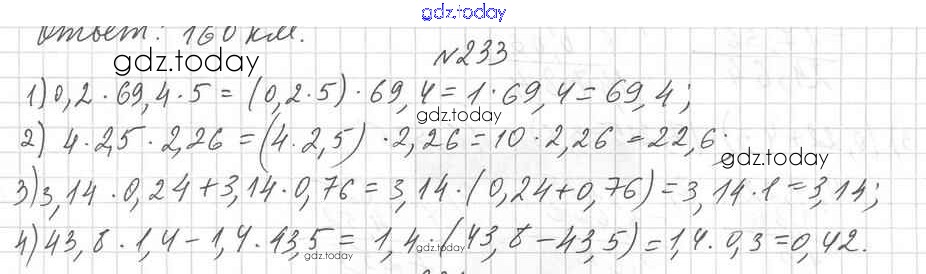 gdz.today
Ответ: 160 км.
gdz.today
№233
1) 0,2 · 69,4 · 5 = (0,2 · 5) · 69,4 = 1 · 69,4 = 69,4;
gdz.today
2) 4 · 2,5 · 2,26 = (4 · 2,5) · 2,26 = 10 · 2,26 = 22,6;
gdz.today
3) 3,14 · 0,24 + 3,14 · 0,76 = 3,14 · (0,24 + 0,76) = 3,14 · 1 = 3,14;
4) 43,8 · 1,4 - 1,4 · 43,5 = 1,4 · (43,8 - 43,5) = 1,4 · 0,3 = 0,42.
gdz.today
gdz.today